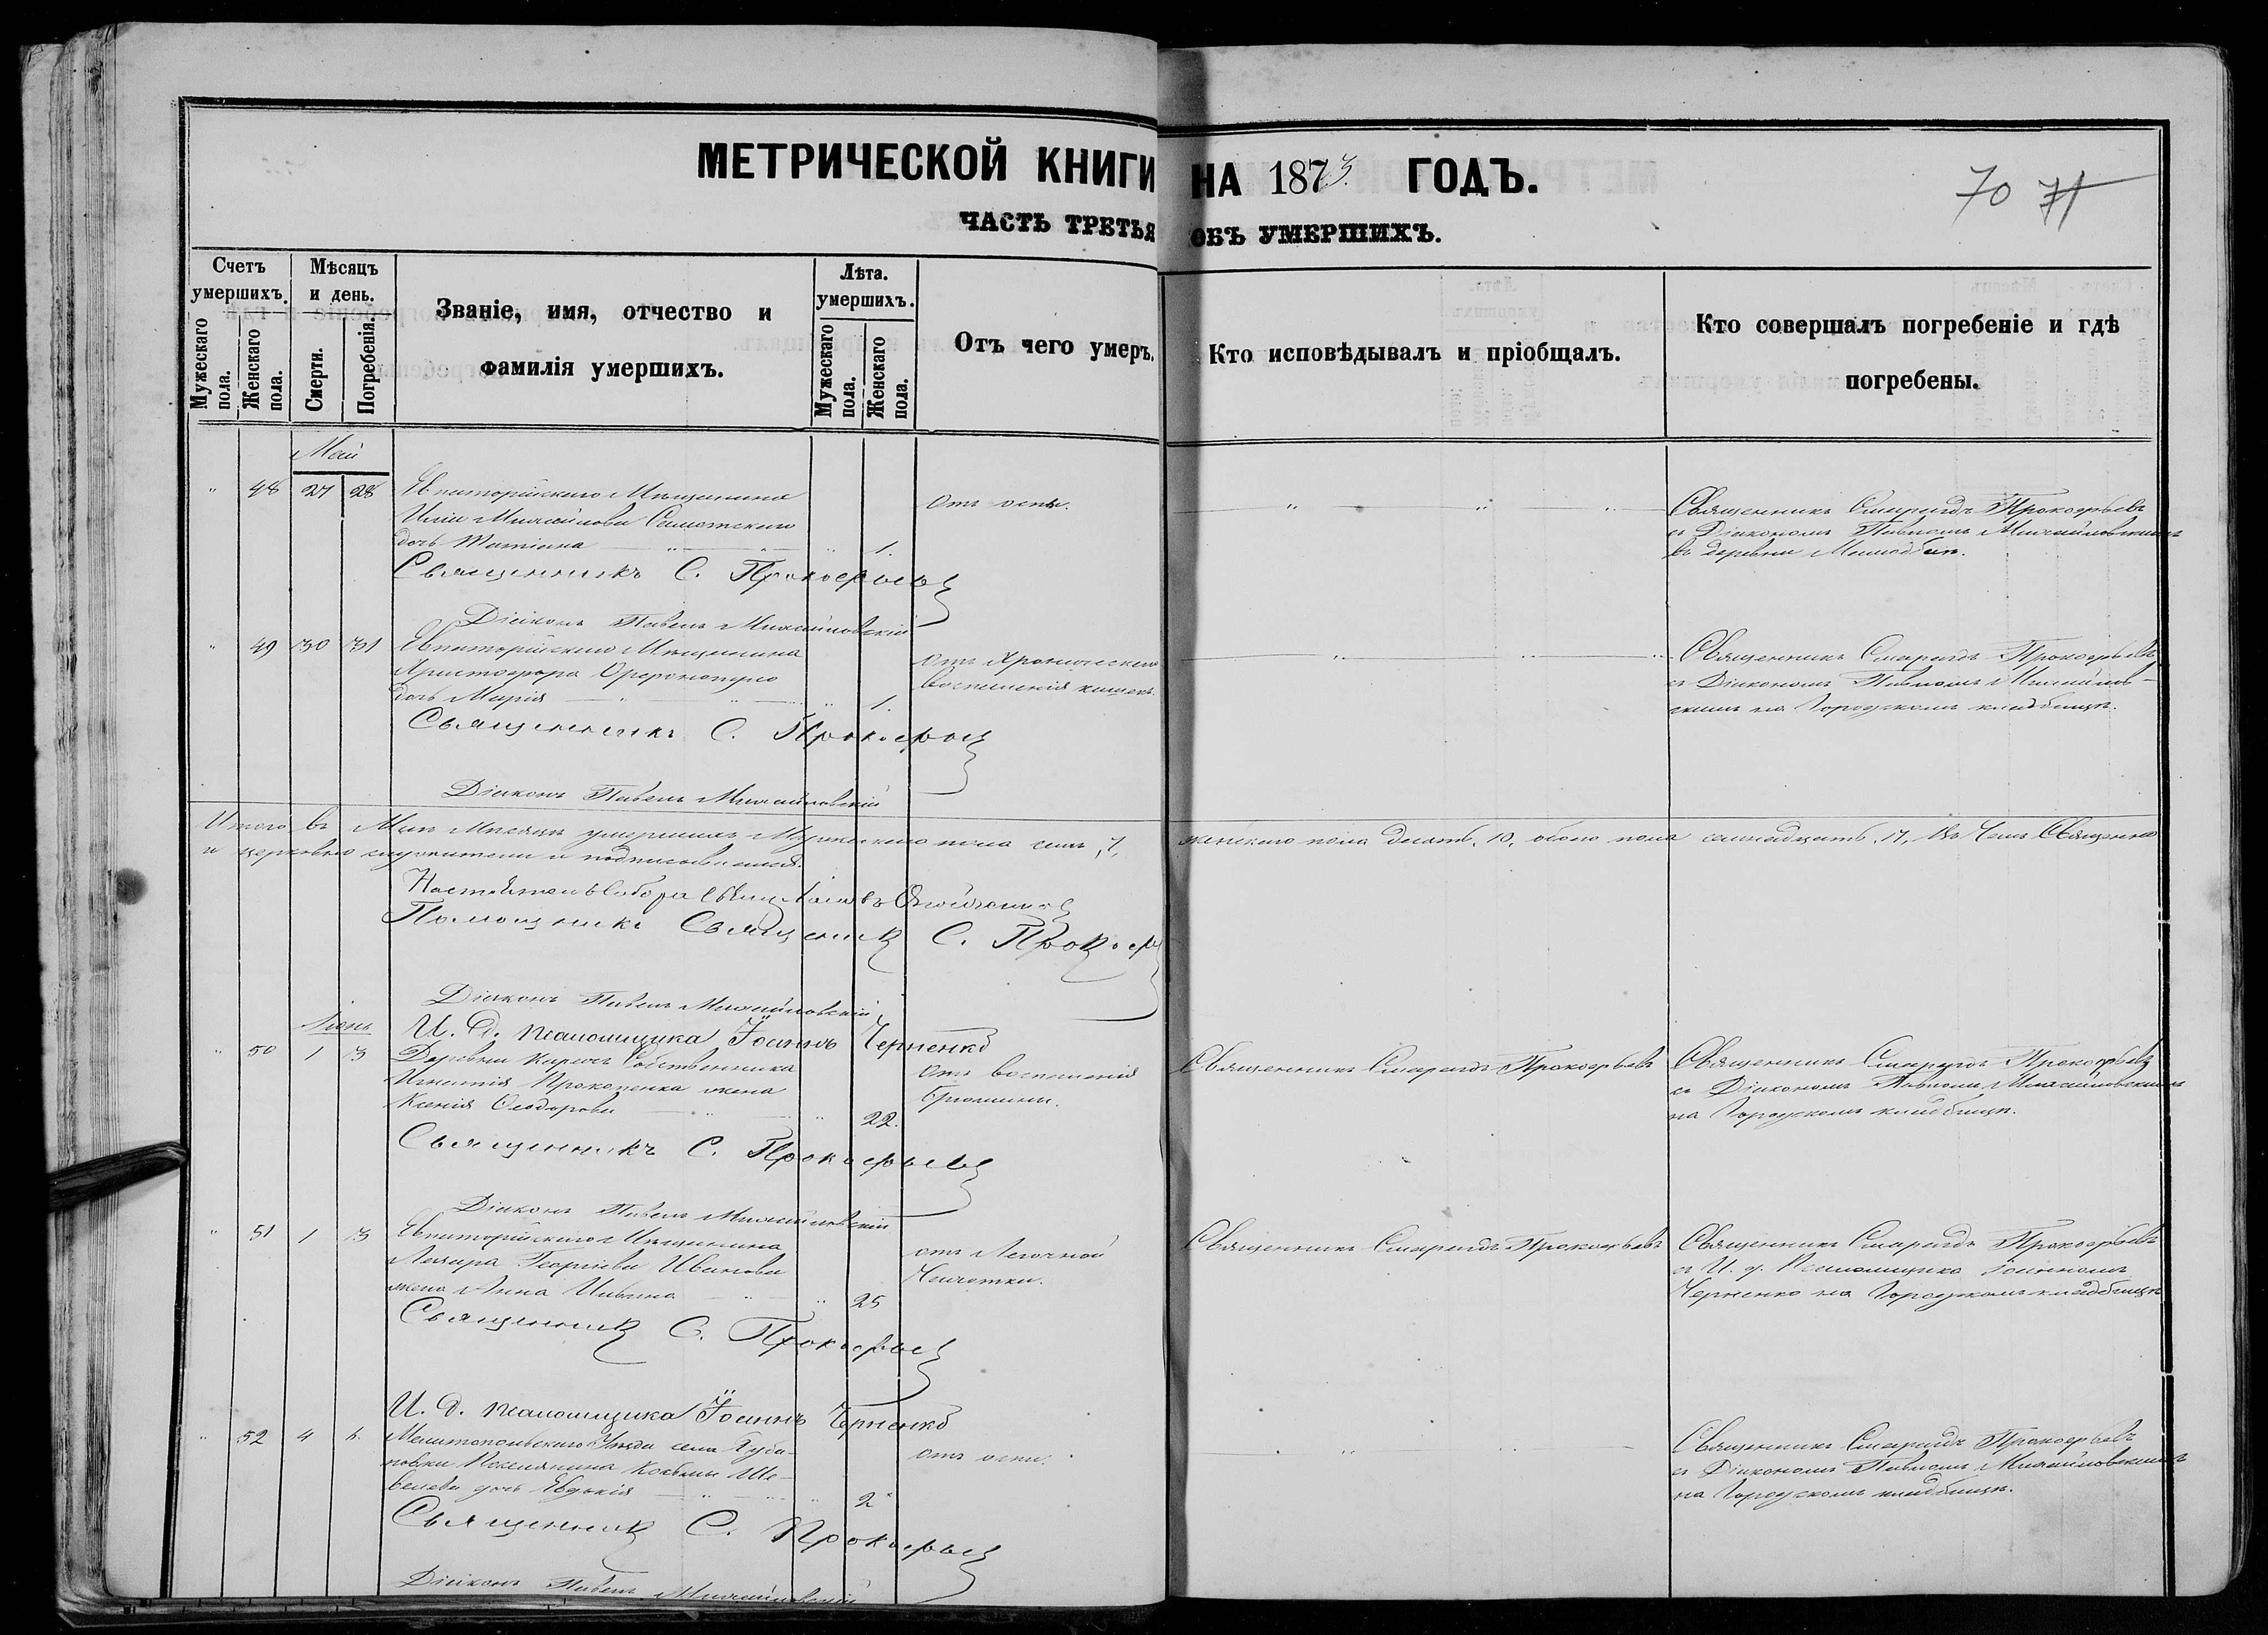 МЕТРИЧЕСКОЙ КНИГИ НА 1873 ГОДЪ.
70 71
ЧАСТЬ ТРЕТЬЯ ОБЪ УМЕРШИХЪ.
Счетъ умершихъ.
Мужескаго пола.
Женскаго пола.
Мѣсяцъ и день.
Смерти.
Погребенія.
Званіе, имя, отчество и
фамилія умершихъ.
Лѣта. умершихъ.
Мужескаго пола.
Женскаго пола.
Отъ чего умеръ.
Кто исповѣдывалъ и пріобщалъ.
Кто совершалъ погребеніе и гдѣ
погребены.
Май
" 48 27 28 Евпаторійскаго Мѣщанина
Иліи Михайлова
дочь Татіана " 1.
отъ оспы.
Священникъ Смарагдъ Прокофьевъ
съ Діакономъ Павломъ Михайловскимъ
въ деревни
Священникъ С. Прокофьевъ
Діаконъ Павелъ Михайловскій
" 49 30 31 Евпаторійскаго Мѣщанина
Христофора
дочь Марія " 1.
отъ Хроническаго
воспаленія кишекъ.
Священникъ Смарагдъ Прокофьевъ
съ Діакономъ Павломъ Михайлов-
скимъ на Городскомъ кладбищѣ.
Священникъ С. Прокофьевъ
Діаконъ Павелъ Михайловскій
Итого въ Маѣ Мѣсяцѣ умершихъ Мужескаго пола семь, 7, женскаго пола десять, 10, обоего пола семнадцать, 17, въ чемъ Священно
и церковно служители и подписываемся.
Настоятель Собора Свящ.
Помощникъ Священникъ С. Прокоф
Діаконъ Павелъ Михайловскій
И. д. псаломщика Іоаннъ Черненко
Іюнь
" 50 1 3 Деревни Собственника
Игнатія Прокопенка жена
Ксенія Ѳеодорова " 22.
отъ воспаленія
брюшины.
Священникъ Смарагдъ Прокофьевъ
Священникъ Смарагдъ Прокофьевъ
съ Діакономъ Павломъ Михайловскимъ
на Городскомъ кладбищѣ.
Священникъ С. Прокофьевъ
Діаконъ Павелъ Михайловскій
" 51 1 3 Евпаторійскаго Мѣщанина
Лазара Георгіева Иванова
жена Анна Ильина " 25
отъ Легочной
Чахотки.
Священникъ Смарагдъ Прокофьевъ
Священникъ Смарагдъ Прокофьевъ
съ И. д. Псаломщика Іоанномъ
Черненко на Городскомъ кладбищѣ
Священникъ С. Прокофьевъ
И. д. псаломщика Іоаннъ Черненко
" 52 4 Мелитопольскаго Уѣзда села
Поселянина Козьмы Ше-
велева дочь Евдокія " 2
отъ оспы.
Священникъ Смарагдъ Прокофьевъ
съ Діакономъ Павломъ Михайловскимъ
на Городскомъ кладбищѣ.
Священникъ С. Прокофьевъ
Діаконъ Павелъ Михайловскій